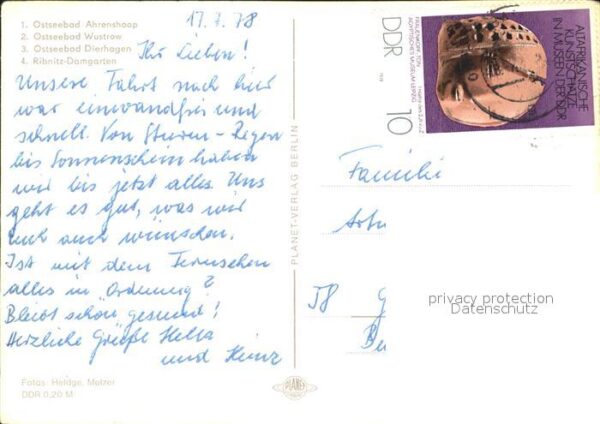 1. Ostseebad Ahrenshoop
2. Ostseebad Wustrow
3. Ostseebad Dierhagen
4. Ribnitz-Damgarten
17.7.78
Ihr Lieben!
Unsere Fahrt nach hier
war einwandfrei und
schnell. Von Sturm-Regen
bis Sonnenschein haben
wir bis jetzt alles. Uns
geht es gut, was wir
Euch auch wünschen.
Ist mit dem Fernsehen
alles in Ordnung?
Bleibt schön gesund!
Herzliche Grüße Hella
und Heinz
Fotos: Heldge, Melzer
DDR 0,20 M
PLANET-VERLAG BERLIN
PLANET
ALTAFRIKANISCHE
KUNSTSCHÄTZE
IN MUSEEN DER DDR
ÄGYPTISCHES MUSEUM LEIPZIG
1978
DDR
10
Familie
58
privacy protection
Datenschutz